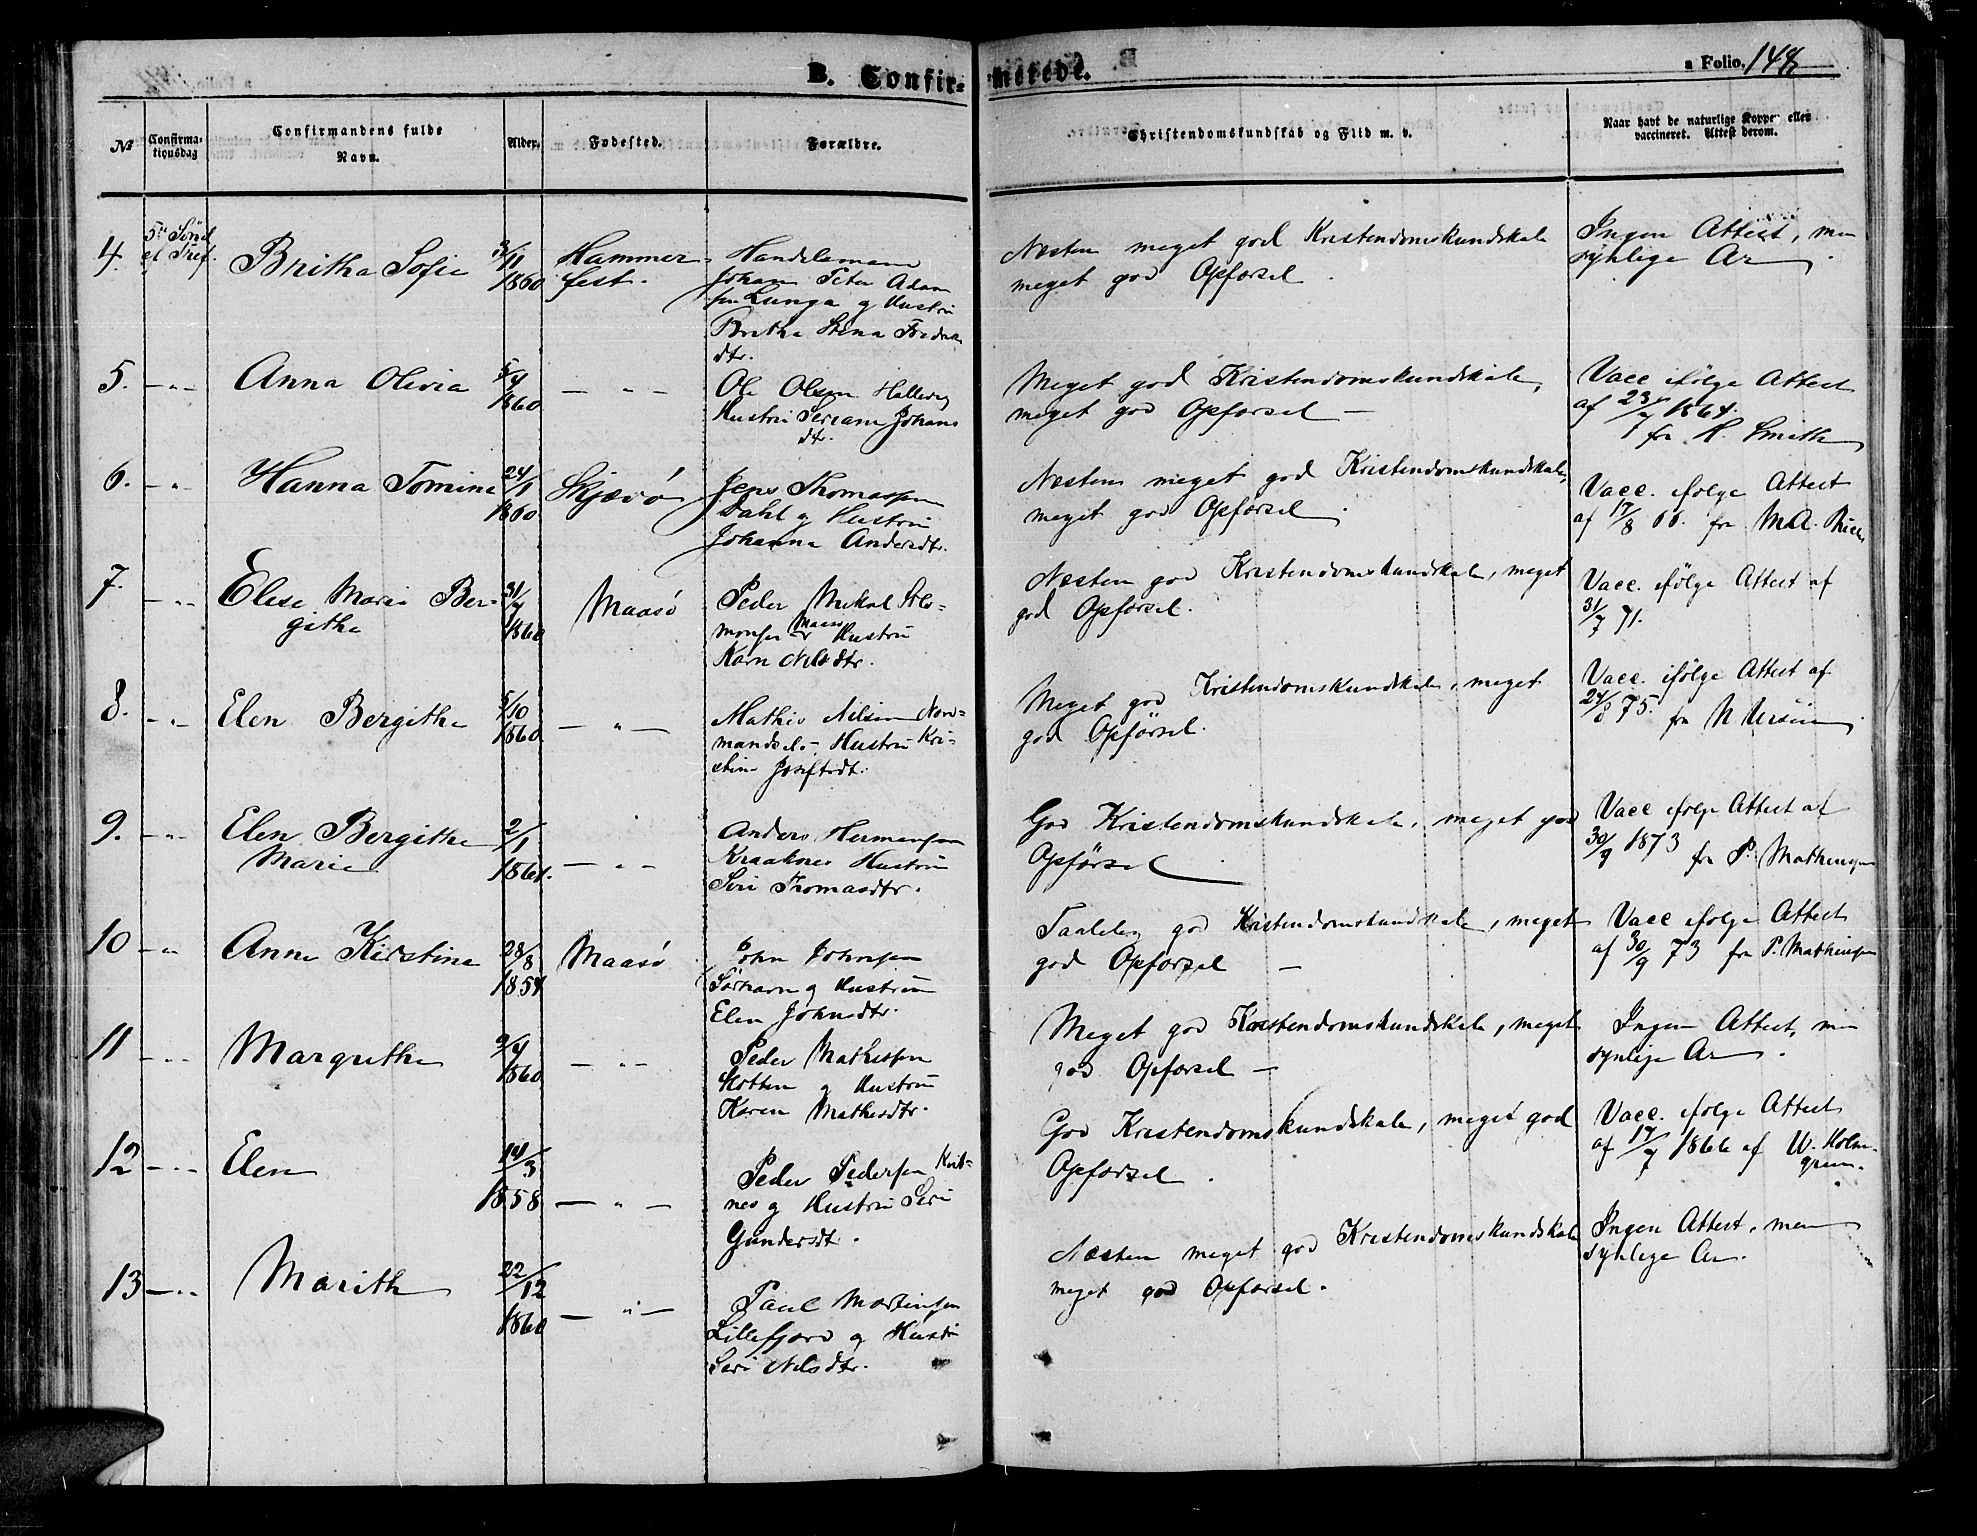 B. Confir- merede.
a Folio. 148
No
Confirma-
tionsdag
Confirmandens fulde
Navn.
Alder.
Fødested.
Forældre.
Christendomskundskab og Flid m. v.
Naar havt de naturlige Kopper eller
vaccineret. Attest derom.
4.
5te Sönd
ef Tref.
Britha Sofie
3/11
1860
Hammer-
fest.
Handelsmann
Johan Peter Adam
sen Lunga og Hustru
Britha Stina Fredriks
dtr.
Næsten meget god Kristendomskundskab
meget god Opførsel
Ingen Attest, men
synlige Ar
5.
Anna Olivia
5/4
1860
Ole Olsen
Hustru Johans
dtr.
Meget god Kristendomskundskab,
meget god Opførsel
Vacc ifølge Attest
af 23/7 1864.
fr H. Smith
6.
Hanna Tomine
24/1
1860
Skjervø
Jens Thomassen
Dahl og Hustru
Johanna Andersdtr.
Næsten meget god Kristendomskundskab,
meget god Opførsel.
Vacc. ifølge Attest
af 17/8 66. fr M.A.
7.
Elise Marie Ber-
githa
31/7
1860
Maasø
Peder Mikal Salo-
monsen Maasø Hustru
Karn Nilsdtr.
Næsten god Kristendomskundskab, meget
god Opførsel.
Vacc. ifølge Attest af
31/7 71.
8.
Elen Bergithe
5/10
1860
Mathis Nilsen Nor-
mandsets Hustru Kri-
stine Josefsdt.
Meget god Kristendomskundskab, meget
god Opførsel.
Vacc. ifølge Attest af
24/8 75. fr
9.
Elen Bergithe
Marie
2/1
1861.
Anders Hermansen
Kraaknes Hustru
Siri Thomasdtr.
God Kristendomskundskab, meget god
Opførsel
Vacc ifølge Attest af
30/9 1873 fr P. Mathiesen
10
Anne Kirstine
28/8
1859
Maasø
John Johnsen
Sørhavn og Hustru
Elen Johnsdtr.
Taalelig god Kristendomskundskab, meget
god Opførsel
Vacc ifølge Attest
af 30/9 73 fr P. Mathiesen
11
Margrethe
9/4
1860
Peder Mathissen
og Hustru
Karen Mathisdtr.
Meget god Kristendomskundskab, meget
god Opførsel
Ingen Attest, men
synlige Ar.
12
Elen
14/3
1858
Peder Pedersen Kvit-
nes og Hustru Siri
Gundersdt.
God Kristendomskundskab, meget god
Opførsel.
Vacc. ifølge Attest
af 17/7 1866 af W. Holm-
green.
13
Marith
22/12
1860
Paul Mortensen
Lillefjord og Hustru
Siri Nilsdtr.
Næsten meget god Kristendomskundskab
meget god Opførsel.
Ingen Attest, men
synlige Ar.